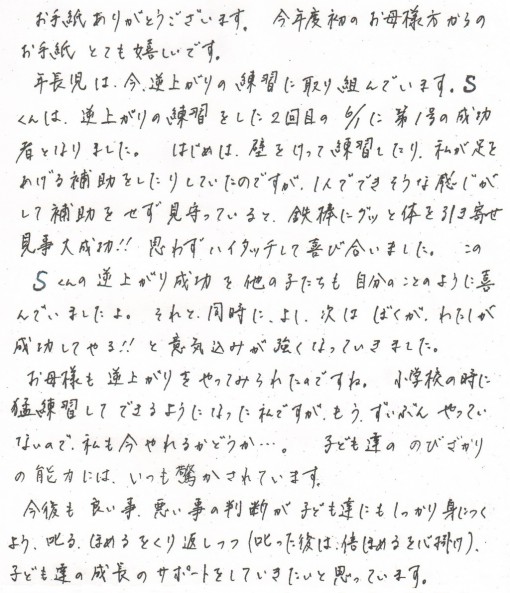 お手紙ありがとうございます。 今年度初のお母様方からの
お手紙 とても嬉しいです。
年長児は、今、逆上がりの練習に取り組んでいます。S
くんは、逆上がりの練習をした2回目の 6/1に第1号の成功
者となりました。 はじめは、壁をけって練習したり、私が足を
あげる補助をしたりしていたのですが、1人でできそうな感じが
して補助をせず見守っていると、鉄棒にグッと体を引き寄せ
見事大成功!! 思わずハイタッチして喜び合いました。 この
Sくんの逆上がり成功を他の子たちも自分のことのように喜
んでいましたよ。 それと、同時に、よし、次は ぼくが、わたしが
成功してやる!! と意気込みが強くなっていきました。
お母様も逆上がりをやってみられたのですね。 小学校の時に
猛練習してできるようになった私ですが、もう、ずいぶんやってい
ないので、私も今やれるかどうか…。 子ども達の のびざかり
の能力には、いつも驚かされています。
今後も良い事、悪い事の判断が子ども達にもしっかり身につく
よう、叱る、ほめるをくり返しつつ(叱った後は、倍ほめるを心掛け)、
子ども達の成長のサポートをしていきたいと思っています。